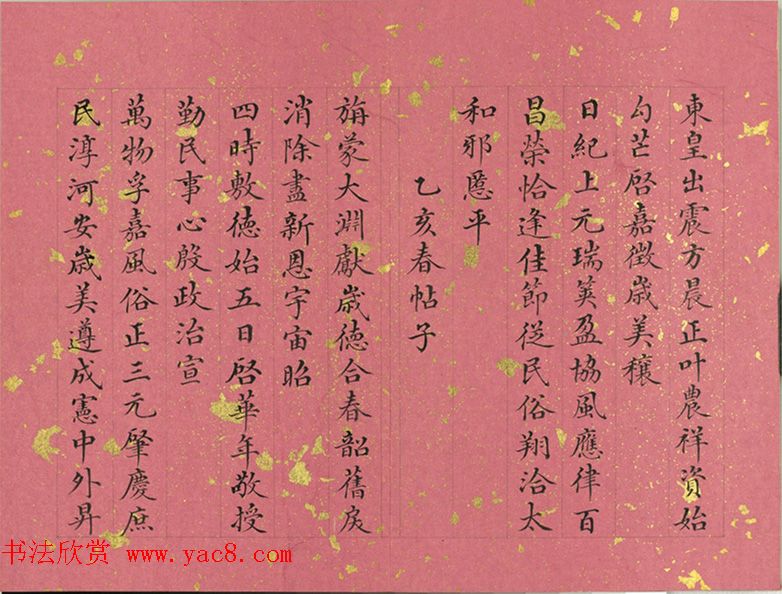 東皇出震方晨正叶農祥資始
勾芒啓嘉徵歳美穰
日紀上元瑞莢盈協風應律百
昌榮恰逢佳節從民俗翔洽太
和邪慝平
乙亥春帖子
旃蒙大淵獻歳德合春韶舊戾
消除盡新恩宇宙昭
四時敷德始五日啓華年敬授
勤民事心殷政治宣
萬物孚嘉風俗正三元肇慶庶
民淳河安歳美遵成憲中外昇
书法欣赏 www.yac8.com